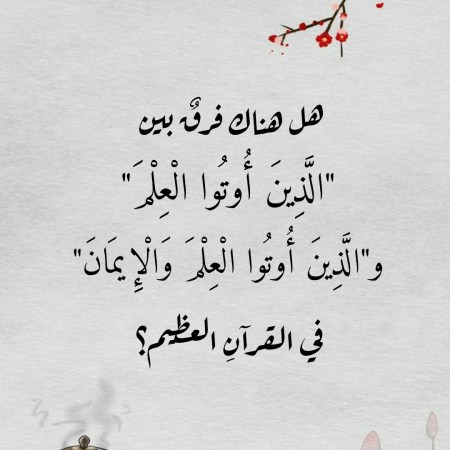 هل هناك فرقٌ بين
"الَّذِينَ أُوتُوا الْعِلْمَ"
و"الَّذِينَ أُوتُوا الْعِلْمَ وَالْإِيمَانَ"
في القرآنِ العظيم؟